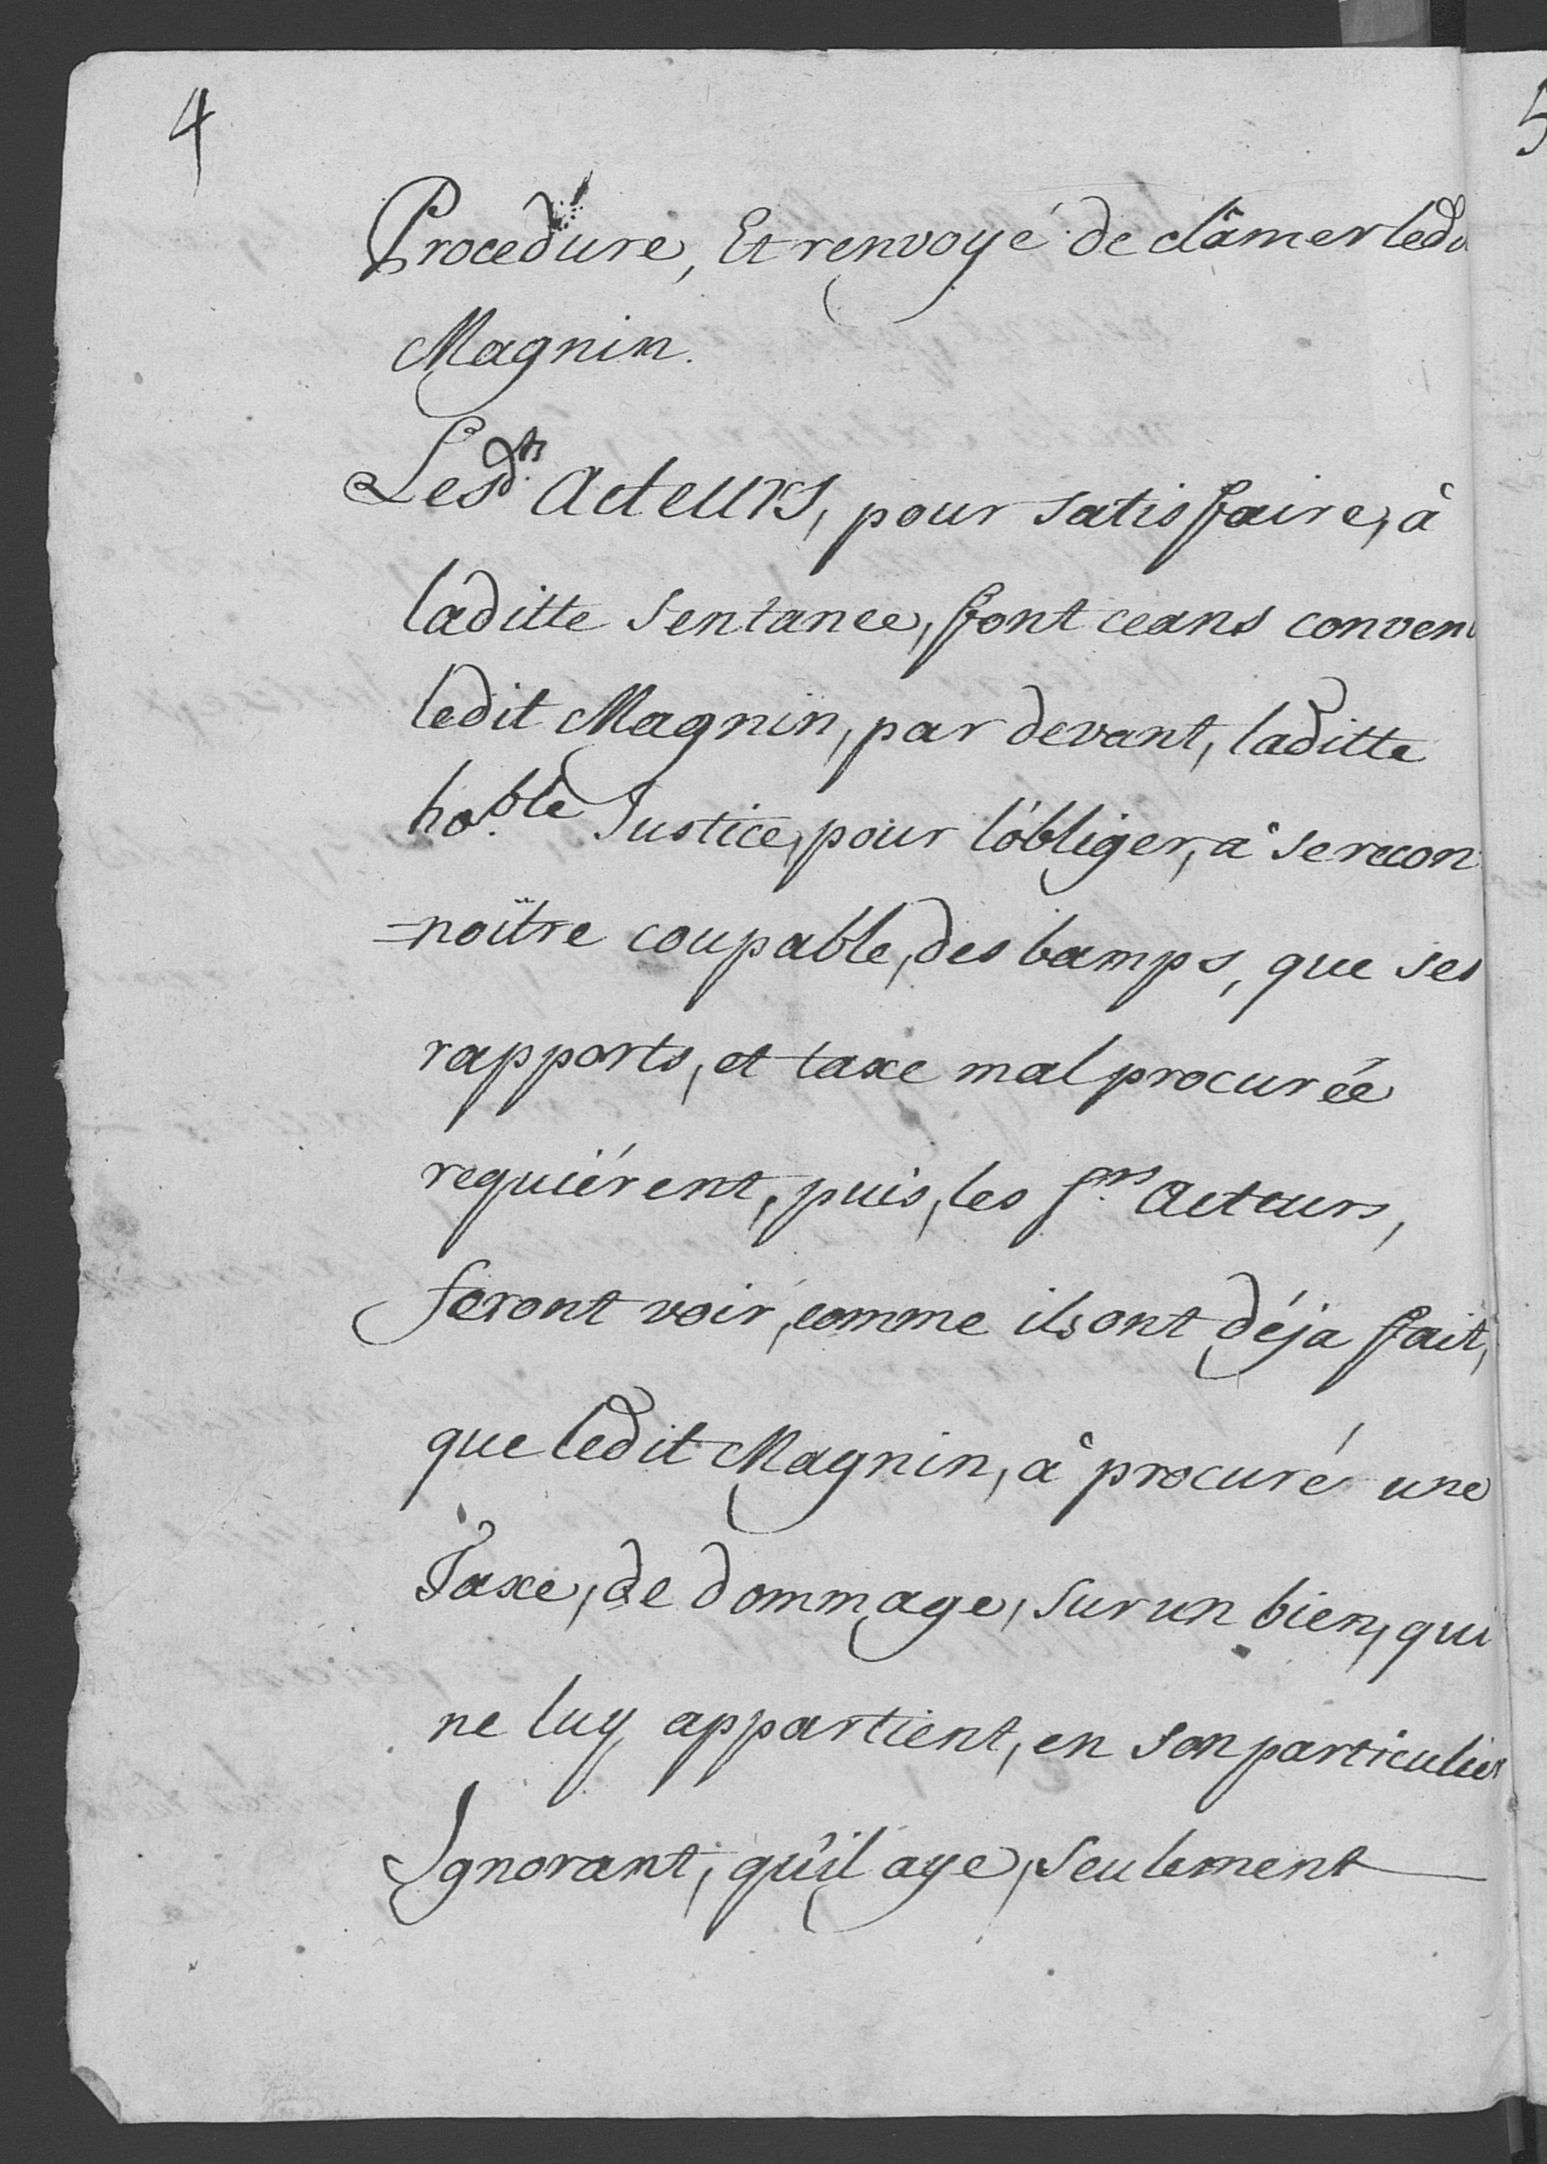 4
5
Procedure, Et renvoyé de clâmer led
Magnin.
Lesdts Acteurs, pour satisfaire, à
laditte Sentance, font ceans conven
ledit Magnin, par devant, laditte
hoble Justice, pour l'obliger, à se recon
=noître coupable, des bamps, que ses
rapports, et taxe mal procurée
requiérent, puis, les Srs Acteurs,
feront voir, comme ils ont déja fait,
que ledit Magnin, à procuré une
Taxe, de dommage, sur un bien, qui
ne luy appartient, en son particulier
Ignorant, qu'il aye, seulement